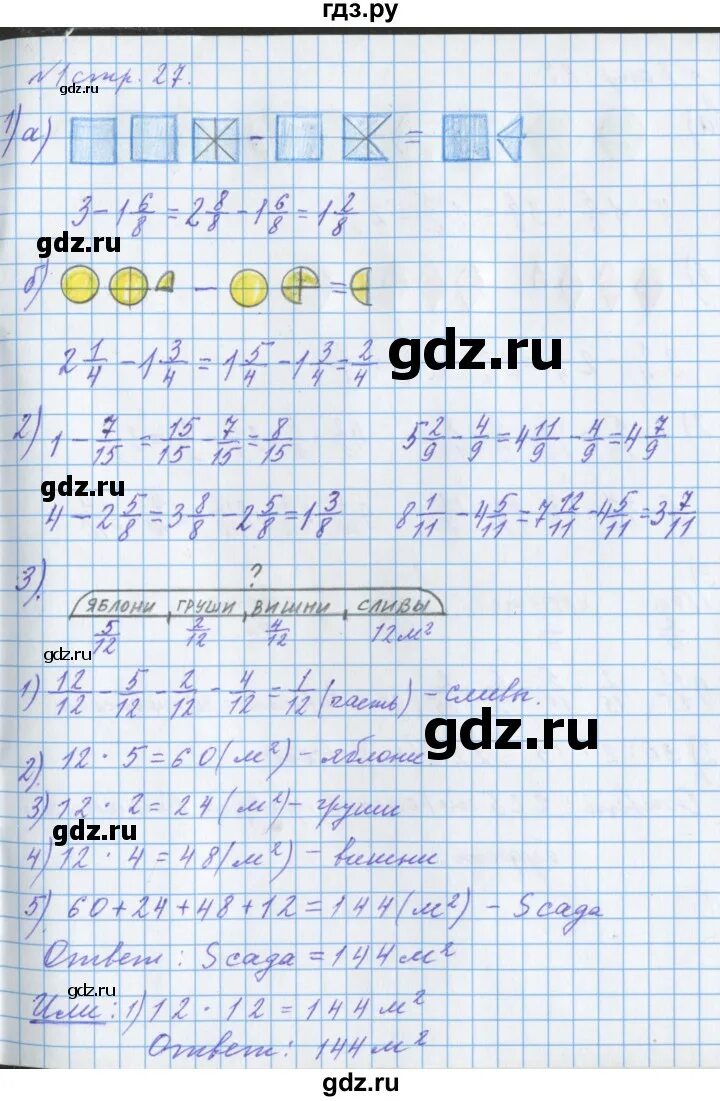 гдз.ру
№1 стр. 27.
gdz.ru
1) а) - =
3 - 1 6/8 = 2 8/8 - 1 6/8 = 1 2/8
gdz.ru
б) - =
2 1/4 - 1 3/4 = 1 5/4 - 1 3/4 = 2/4
gdz.ru
2) 1 - 7/15 = 15/15 - 7/15 = 8/15 5 2/9 - 4/9 = 4 11/9 - 4/9 = 4 7/9
gdz.ru
4 - 2 5/8 = 3 8/8 - 2 5/8 = 1 3/8 8 1/11 - 4 5/11 = 7 12/11 - 4 5/11 = 3 7/11
3). ?
ЯБЛОНИ ГРУШИ ВИШНИ СЛИВЫ
5/12 2/12 4/12 12 м²
gdz.ru
1) 12/12 - 5/12 - 2/12 - 4/12 = 1/12 (часть) - сливы.
gdz.ru
2) 12 · 5 = 60 (м²) - яблони.
3) 12 · 2 = 24 (м²) - груши
gdz.ru
4) 12 · 4 = 48 (м²) - вишни
5) 60 + 24 + 48 + 12 = 144 (м²) - S сада
Ответ: S сада = 144 м²
gdz.ru
Или: 1) 12 · 12 = 144 м²
Ответ: 144 м²
gdz.ru